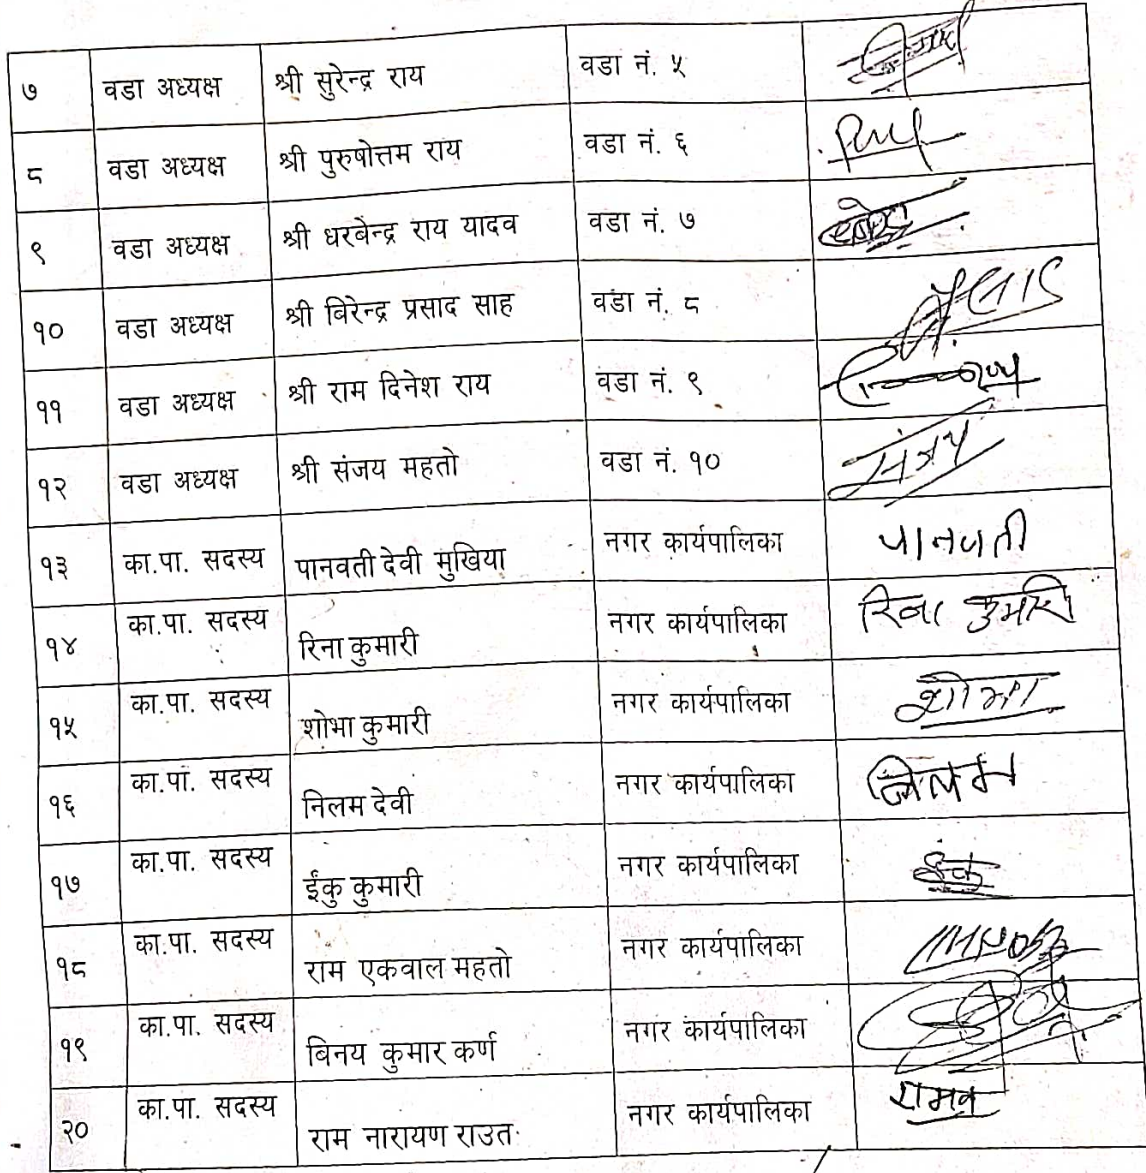 ७ वडा अध्यक्ष श्री सुरेन्द्र राय वडा नं. ५
८ वडा अध्यक्ष श्री पुरुषोत्तम राय वडा नं. ६
९ वडा अध्यक्ष श्री धरबेन्द्र राय यादव वडा नं. ७
१० वडा अध्यक्ष श्री बिरेन्द्र प्रसाद साह वडा नं. ८
११ वडा अध्यक्ष श्री राम दिनेश राय वडा नं. ९
१२ वडा अध्यक्ष श्री संजय महतो वडा नं. १० संजय
१३ का.पा. सदस्य पानवती देवी मुखिया नगर कार्यपालिका पानवती
१४ का.पा. सदस्य रिना कुमारी नगर कार्यपालिका रिना कुमारी
१५ का.पा. सदस्य शोभा कुमारी नगर कार्यपालिका शोभा
१६ का.पा. सदस्य निलम देवी नगर कार्यपालिका निलम
१७ का.पा. सदस्य ईंकु कुमारी नगर कार्यपालिका
१८ का.पा. सदस्य राम एकवाल महतो नगर कार्यपालिका
१९ का.पा. सदस्य बिनय कुमार कर्ण नगर कार्यपालिका
२० का.पा. सदस्य राम नारायण राउत नगर कार्यपालिका